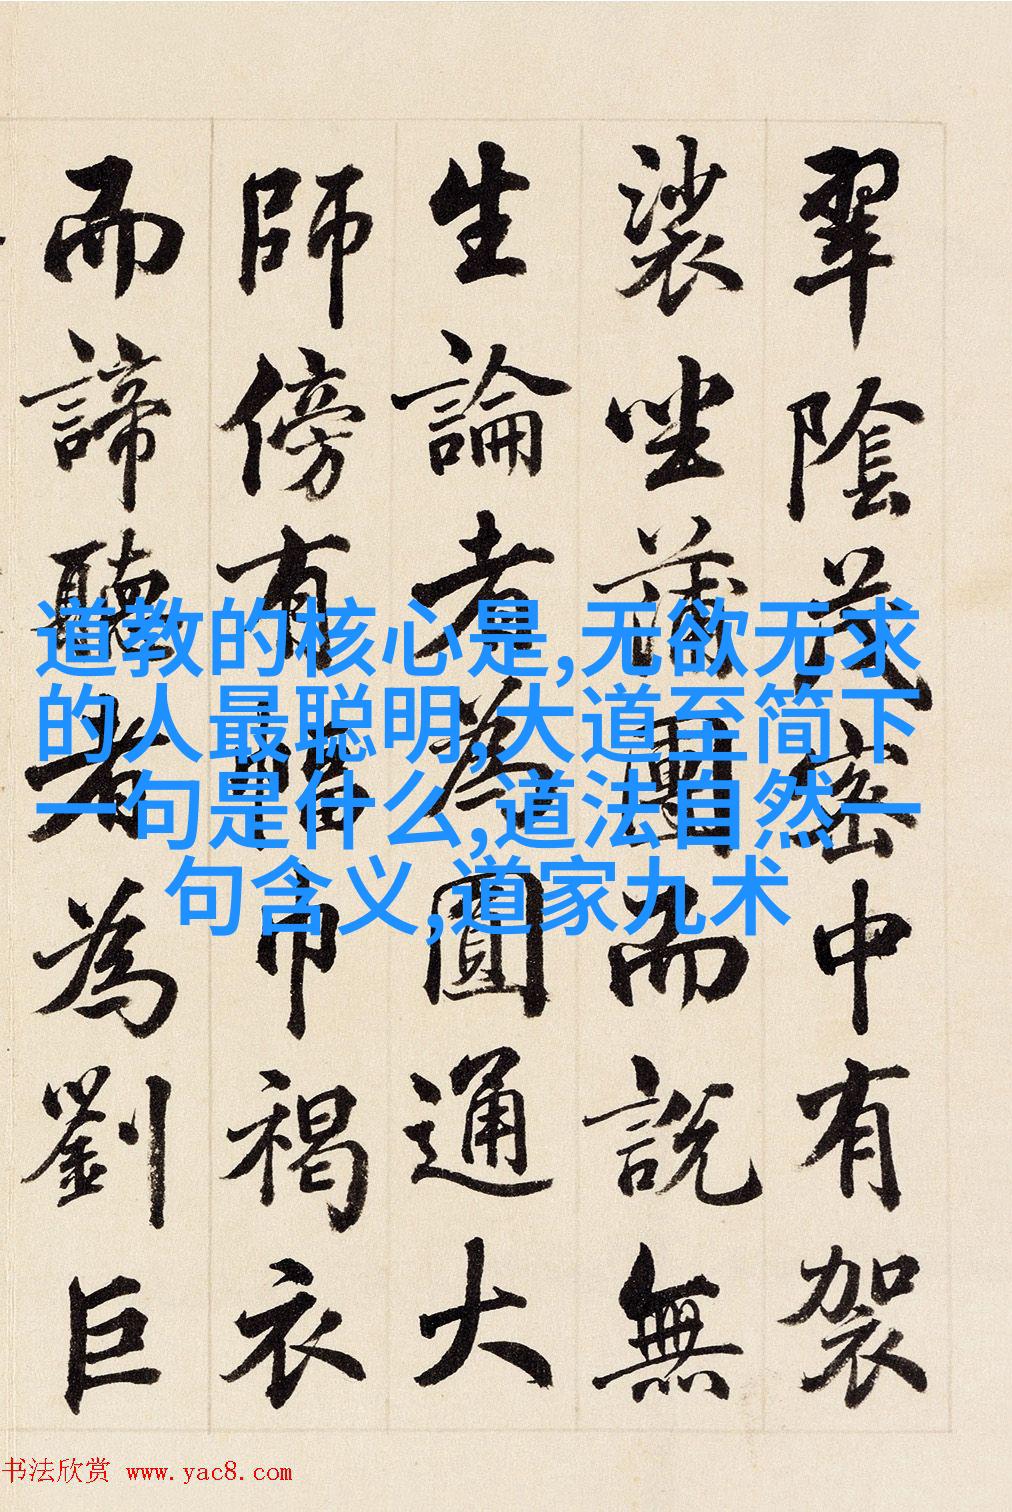 翠陰茂密中有袈
裟坐蒲團而說無
生論者為圓通大
師傍有幅巾褐衣
而諦聽者為劉巨
道教的核心是,无欲无求
的人最聪明,大道至简下
一句是什么,道法自然一
句含义,道家九术
书法欣赏 www.yac8.com